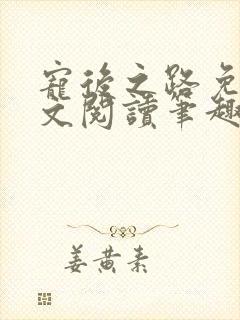 寵後之路免
文閱讀筆趣
姜黃素